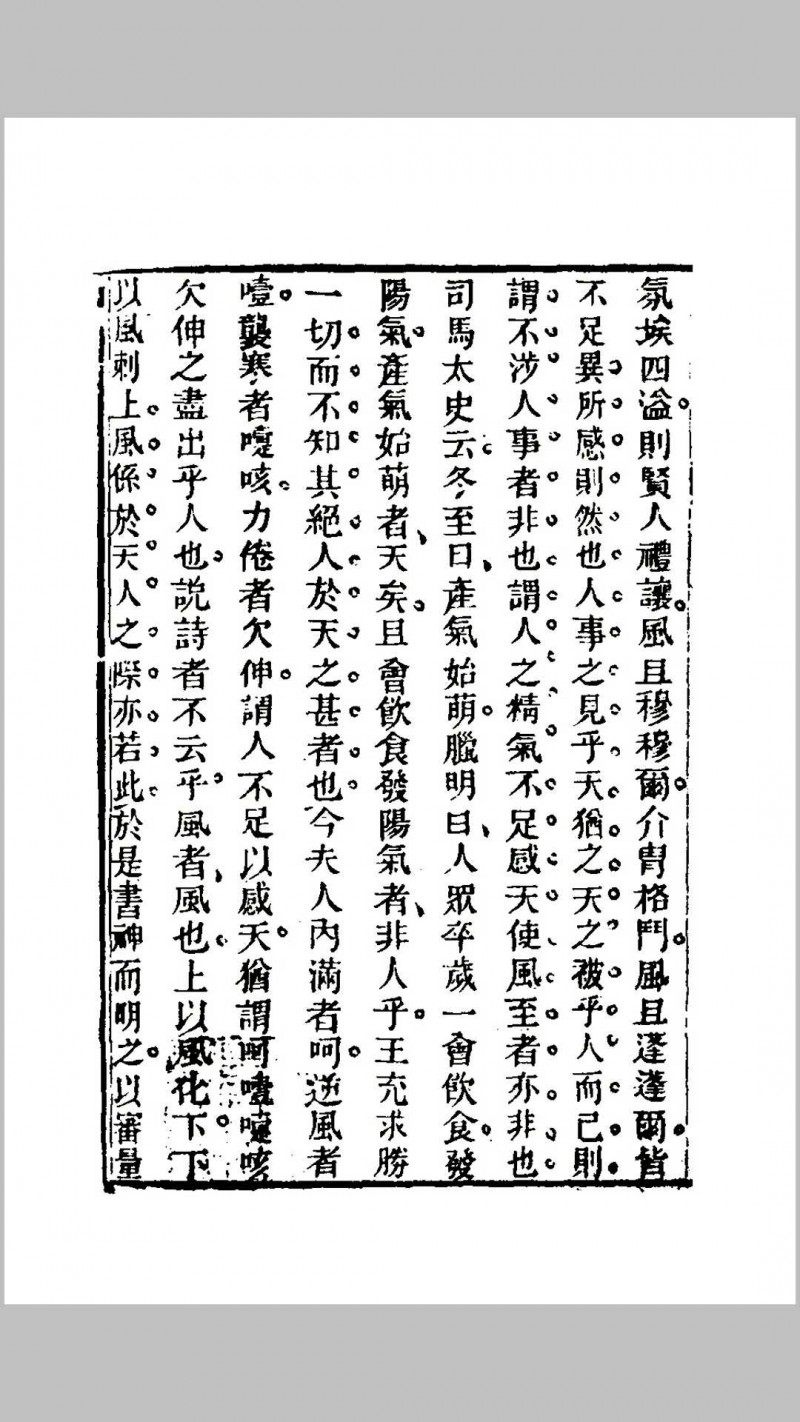 氛埃四溢則賢人禮讓風且穆穆爾介冑格鬥風且蓬蓬爾皆
不足異所感則然也人事之見乎天猶之天之被乎人而已則
謂不涉人事者非也謂人之精氣不足感天使風至者亦非也
司馬太史云冬至日產氣始萌臘明日人眾卒歲一會飲食發
陽氣產氣始萌者天矣且會飲食發陽氣者非人乎王充求勝
一切而不知其絕人於天之甚者也今夫人內滿者呵逆風者
噎襲寒者嚏咳力倦者欠伸謂人不足以感天猶謂呵噎嚏咳
欠伸之盡出乎人也說詩者不云乎風者風也上以風化下下
以風刺上風係於天人之際亦若此於是書神而明之以審量